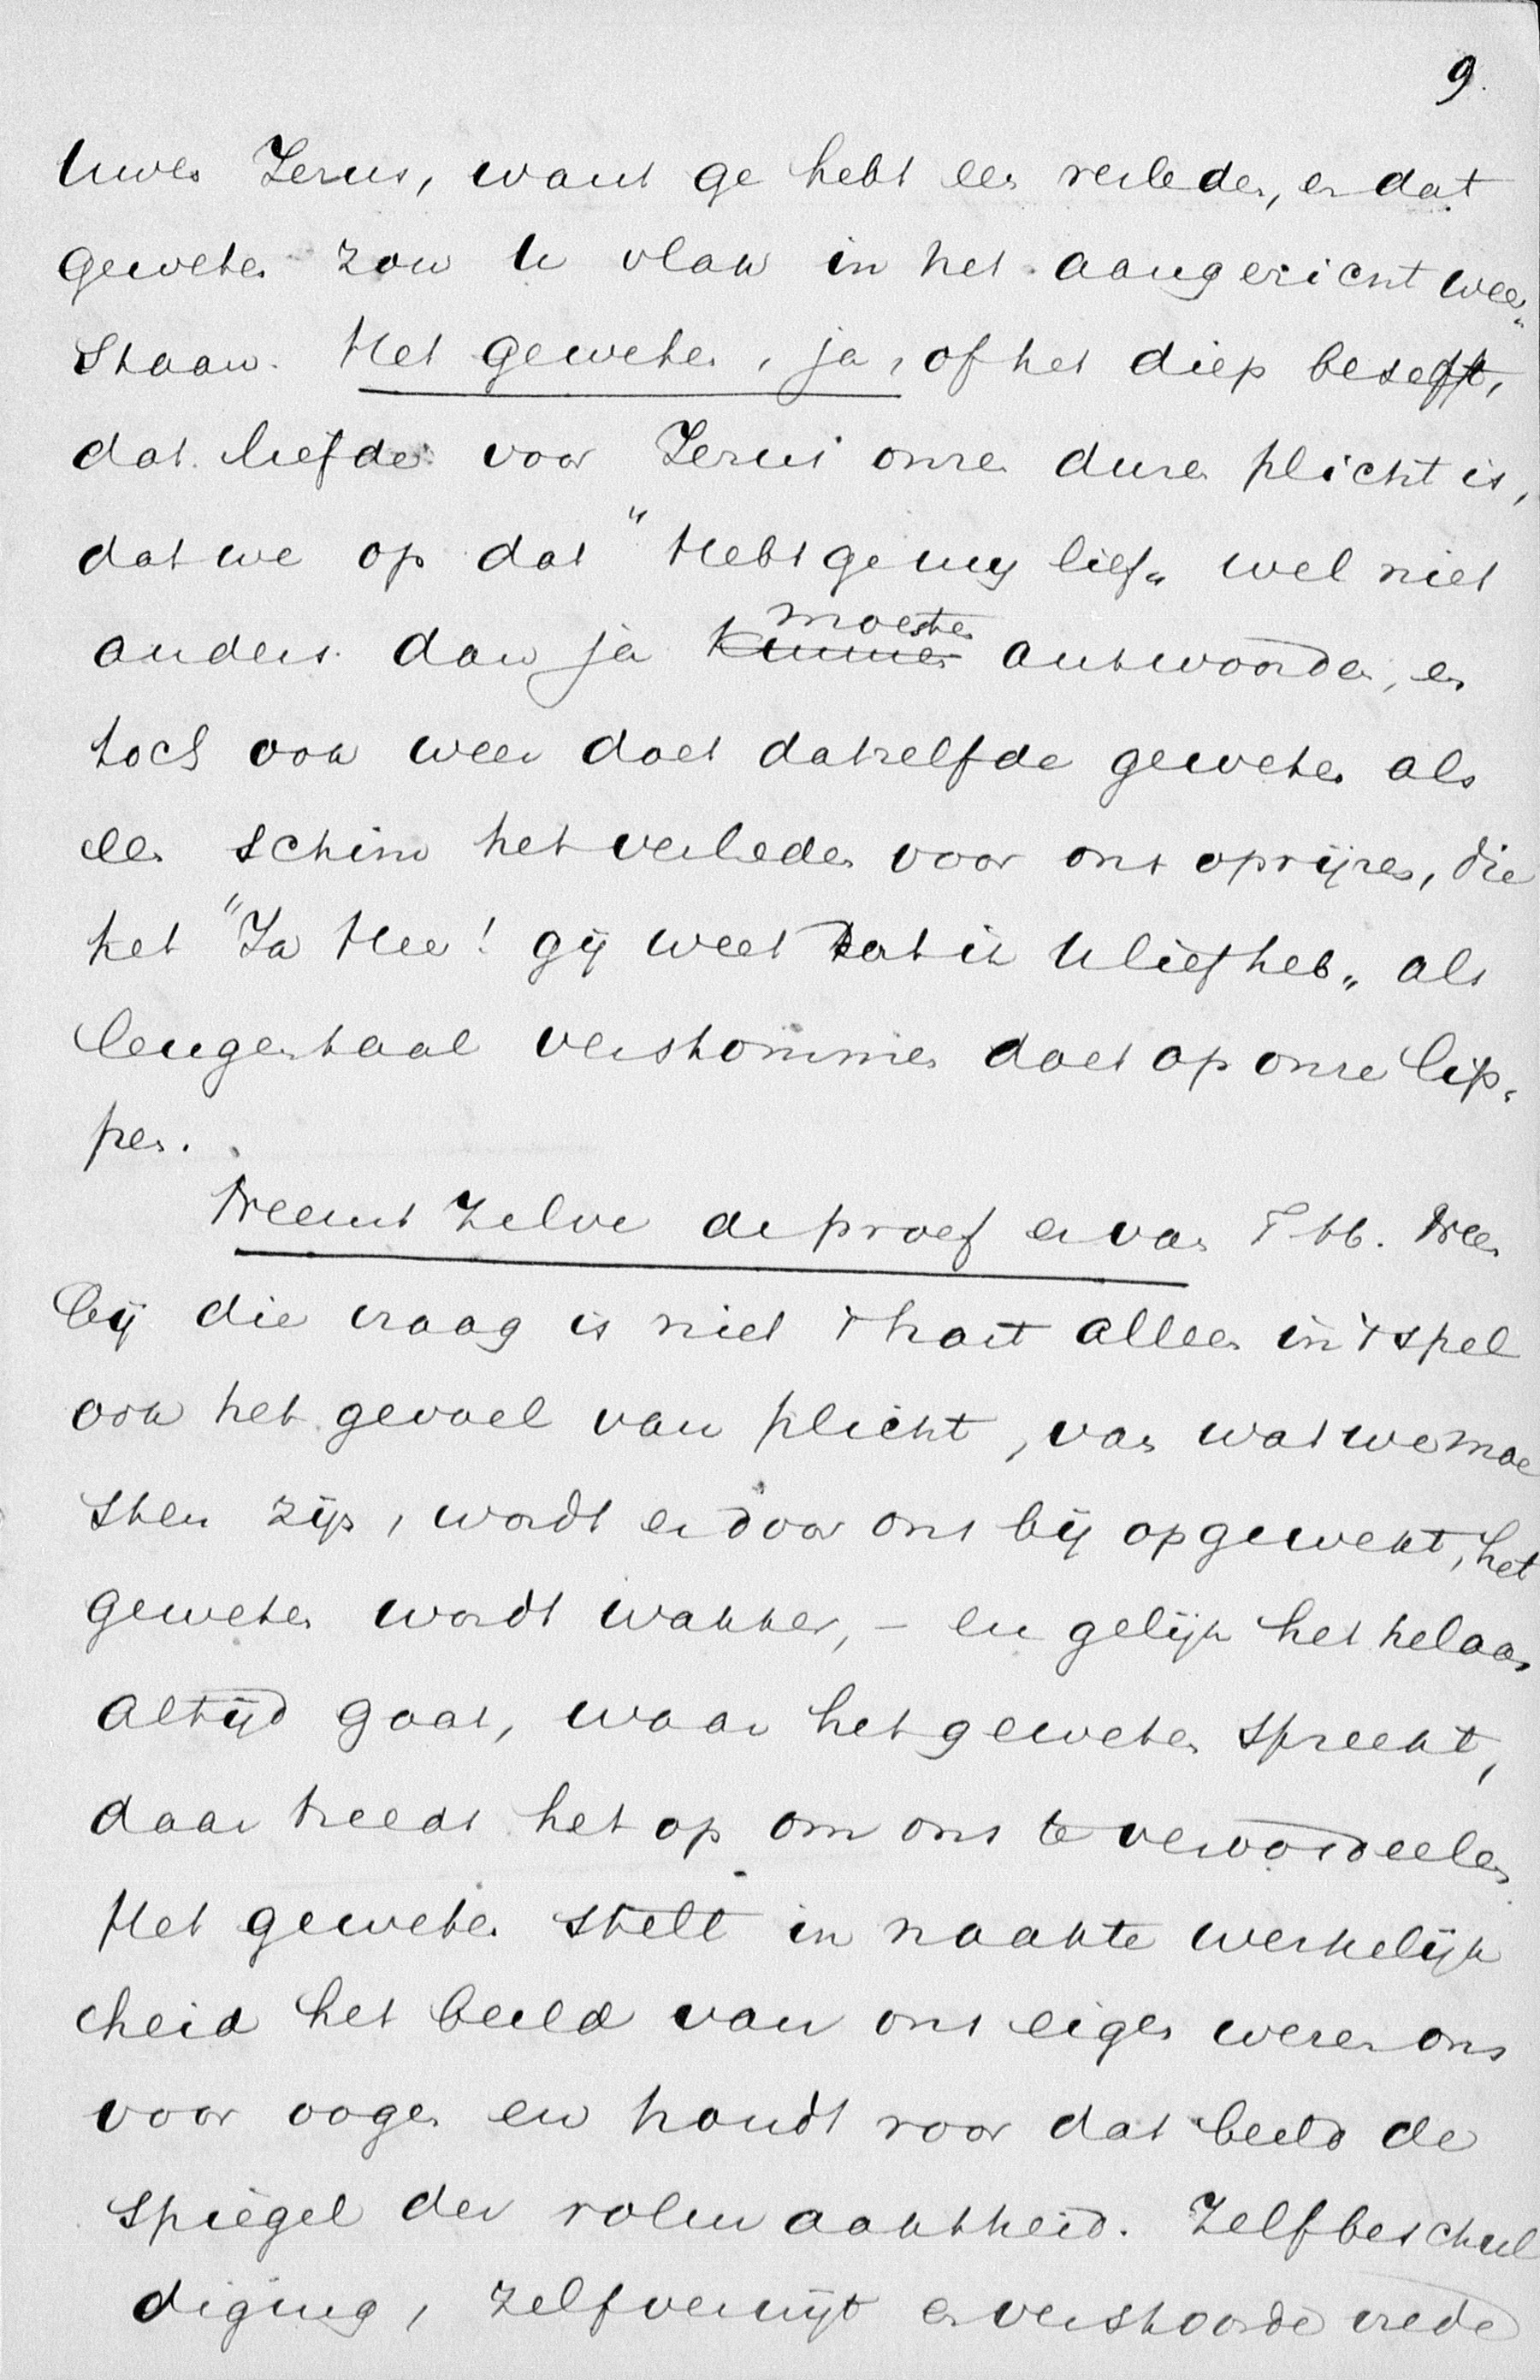 9.
Uwen Jezus, want ge hebt een verleden, en dat
geweten zou U vlak in het aangezicht weer„
staan. Het geweten, ja, of het diep beseft,
dat liefde voor Jezus onze dure plicht is,
dat we op dat "Hebt ge mij lief„ wel niet
moesten
anders dan ja kunnen antwoorden, en
toch ook weer doet datzelfde geweten als
een schim het verleden voor ons oprijzen, die
het "Ja Heer! gij weet dat ik U lief heb„ als
leugentaal verstommen doet op onze lip„
pen.
Neemt zelve de proef er van Thb. Neen
bij die vraag is niet 't hart alleen in 't spel
ook het gevoel van plicht, van wat we moe
sten zijn, wordt er door ons bij opgewekt, het
geweten wordt wakker, – en gelijk het helaas
altijd gaat, waar het geweten spreekt,
daar treedt het op om ons te veroordeelen
Het geweten stelt in naakte werkelijk
cheid het beeld van ons eigen wezen ons
voor oogen en houdt voor dat beeld de
spiegel der volmaaktheid. Zelfbeschul
diging, zelfverwijt en verstoorde vrede